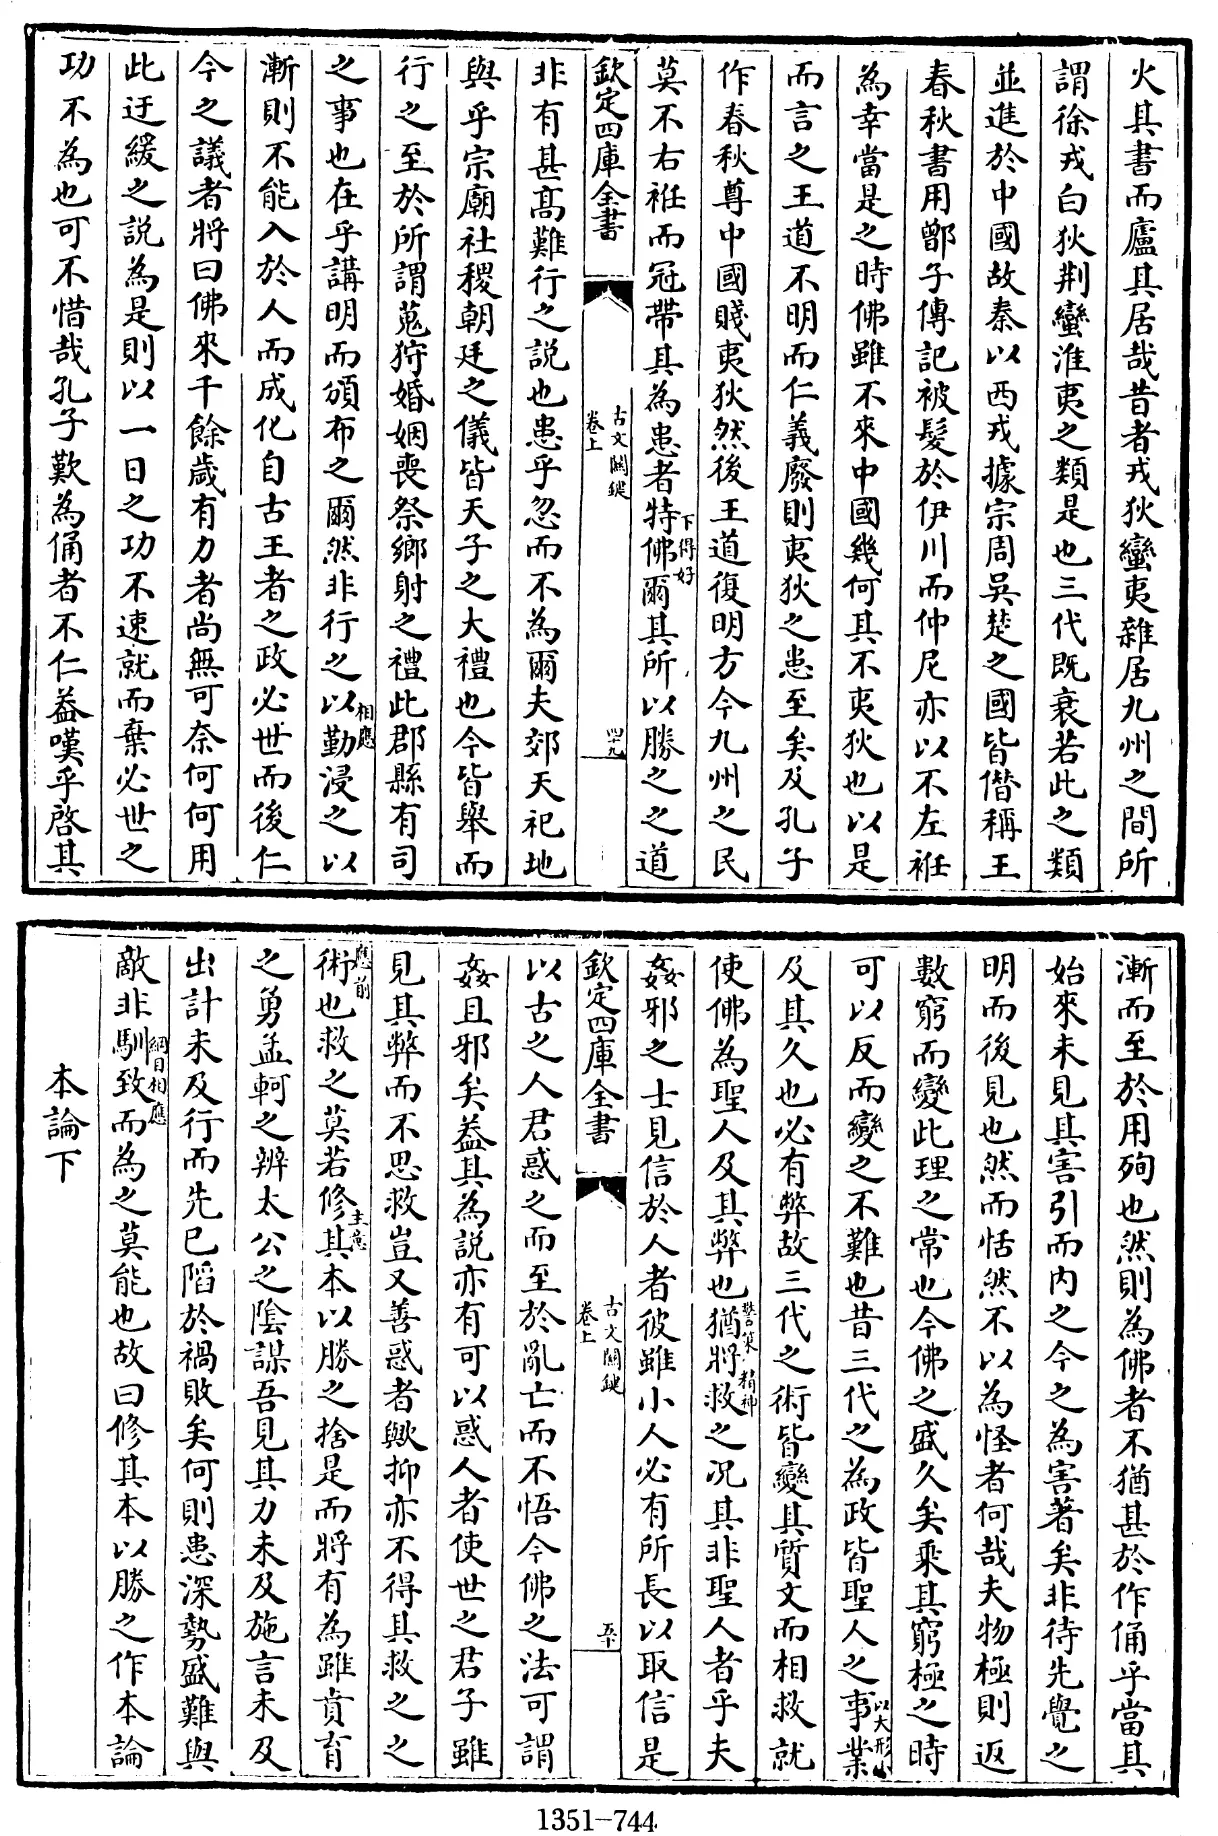 火其書而廬其居哉昔者戎狄蠻夷雜居九州之間所
謂徐戎白狄荆蠻淮夷之類是也三代既衰若此之類
並進於中國故秦以西戎據宗周吳楚之國皆僭稱王
春秋書用鄫子傳記被髮於伊川而仲尼亦以不左衽
為幸當是之時佛雖不來中國幾何其不夷狄也以是
而言之王道不明而仁義廢則夷狄之患至矣及孔子
作春秋尊中國賤夷狄然後王道復明方今九州之民
莫不右衽而冠帶其為患者特佛爾下得好其所以勝之之道
欽定四庫全書
古文關鍵
卷上
四十九
非有甚高難行之說也患乎忽而不為爾夫郊天祀地
與乎宗廟社稷朝廷之儀皆天子之大禮也今皆舉而
行之至於所謂蒐狩婚姻喪祭鄉射之禮此郡縣有司
之事也在乎講明而頒布之爾然非行之以勤相應浸之以
漸則不能入於人而成化自古王者之政必世而後仁
今之議者將曰佛來千餘歲有力者尚無可奈何何用
此迂緩之說為是則以一日之功不速就而棄必世之
功不為也可不惜哉孔子歎為俑者不仁葢嘆乎啓其
漸而至於用殉也然則為佛者不猶甚於作俑乎當其
始來未見其害引而內之今之為害著矣非待先覺之
明而後見也然而恬然不以為怪者何哉夫物極則返
數窮而變此理之常也今佛之盛久矣乘其窮極之時
可以反而變之不難也昔三代之為政皆聖人之事業以大形小
及其久也必有弊故三代之術皆變其質文而相救就
使佛為聖人及其弊也猶將救之警策精神况其非聖人者乎夫
姦邪之士見信於人者彼雖小人必有所長以取信是
欽定四庫全書
古文關鍵
卷上
五十
以古之人君惑之而至於亂亡而不悟今佛之法可謂
姦且邪矣葢其為說亦有可以惑人者使世之君子雖
見其弊而不思救豈又善惑者歟抑亦不得其救之之
術應前也救之莫若修其本以勝之主意捨是而將有為雖賁育
之勇孟軻之辨太公之陰謀吾見其力未及施言未及
出計未及行而先已陷於禍敗矣何則患深勢盛難與
敵非馴致而為之莫能也綱目相應故曰修其本以勝之作本論
本論下
1351-744